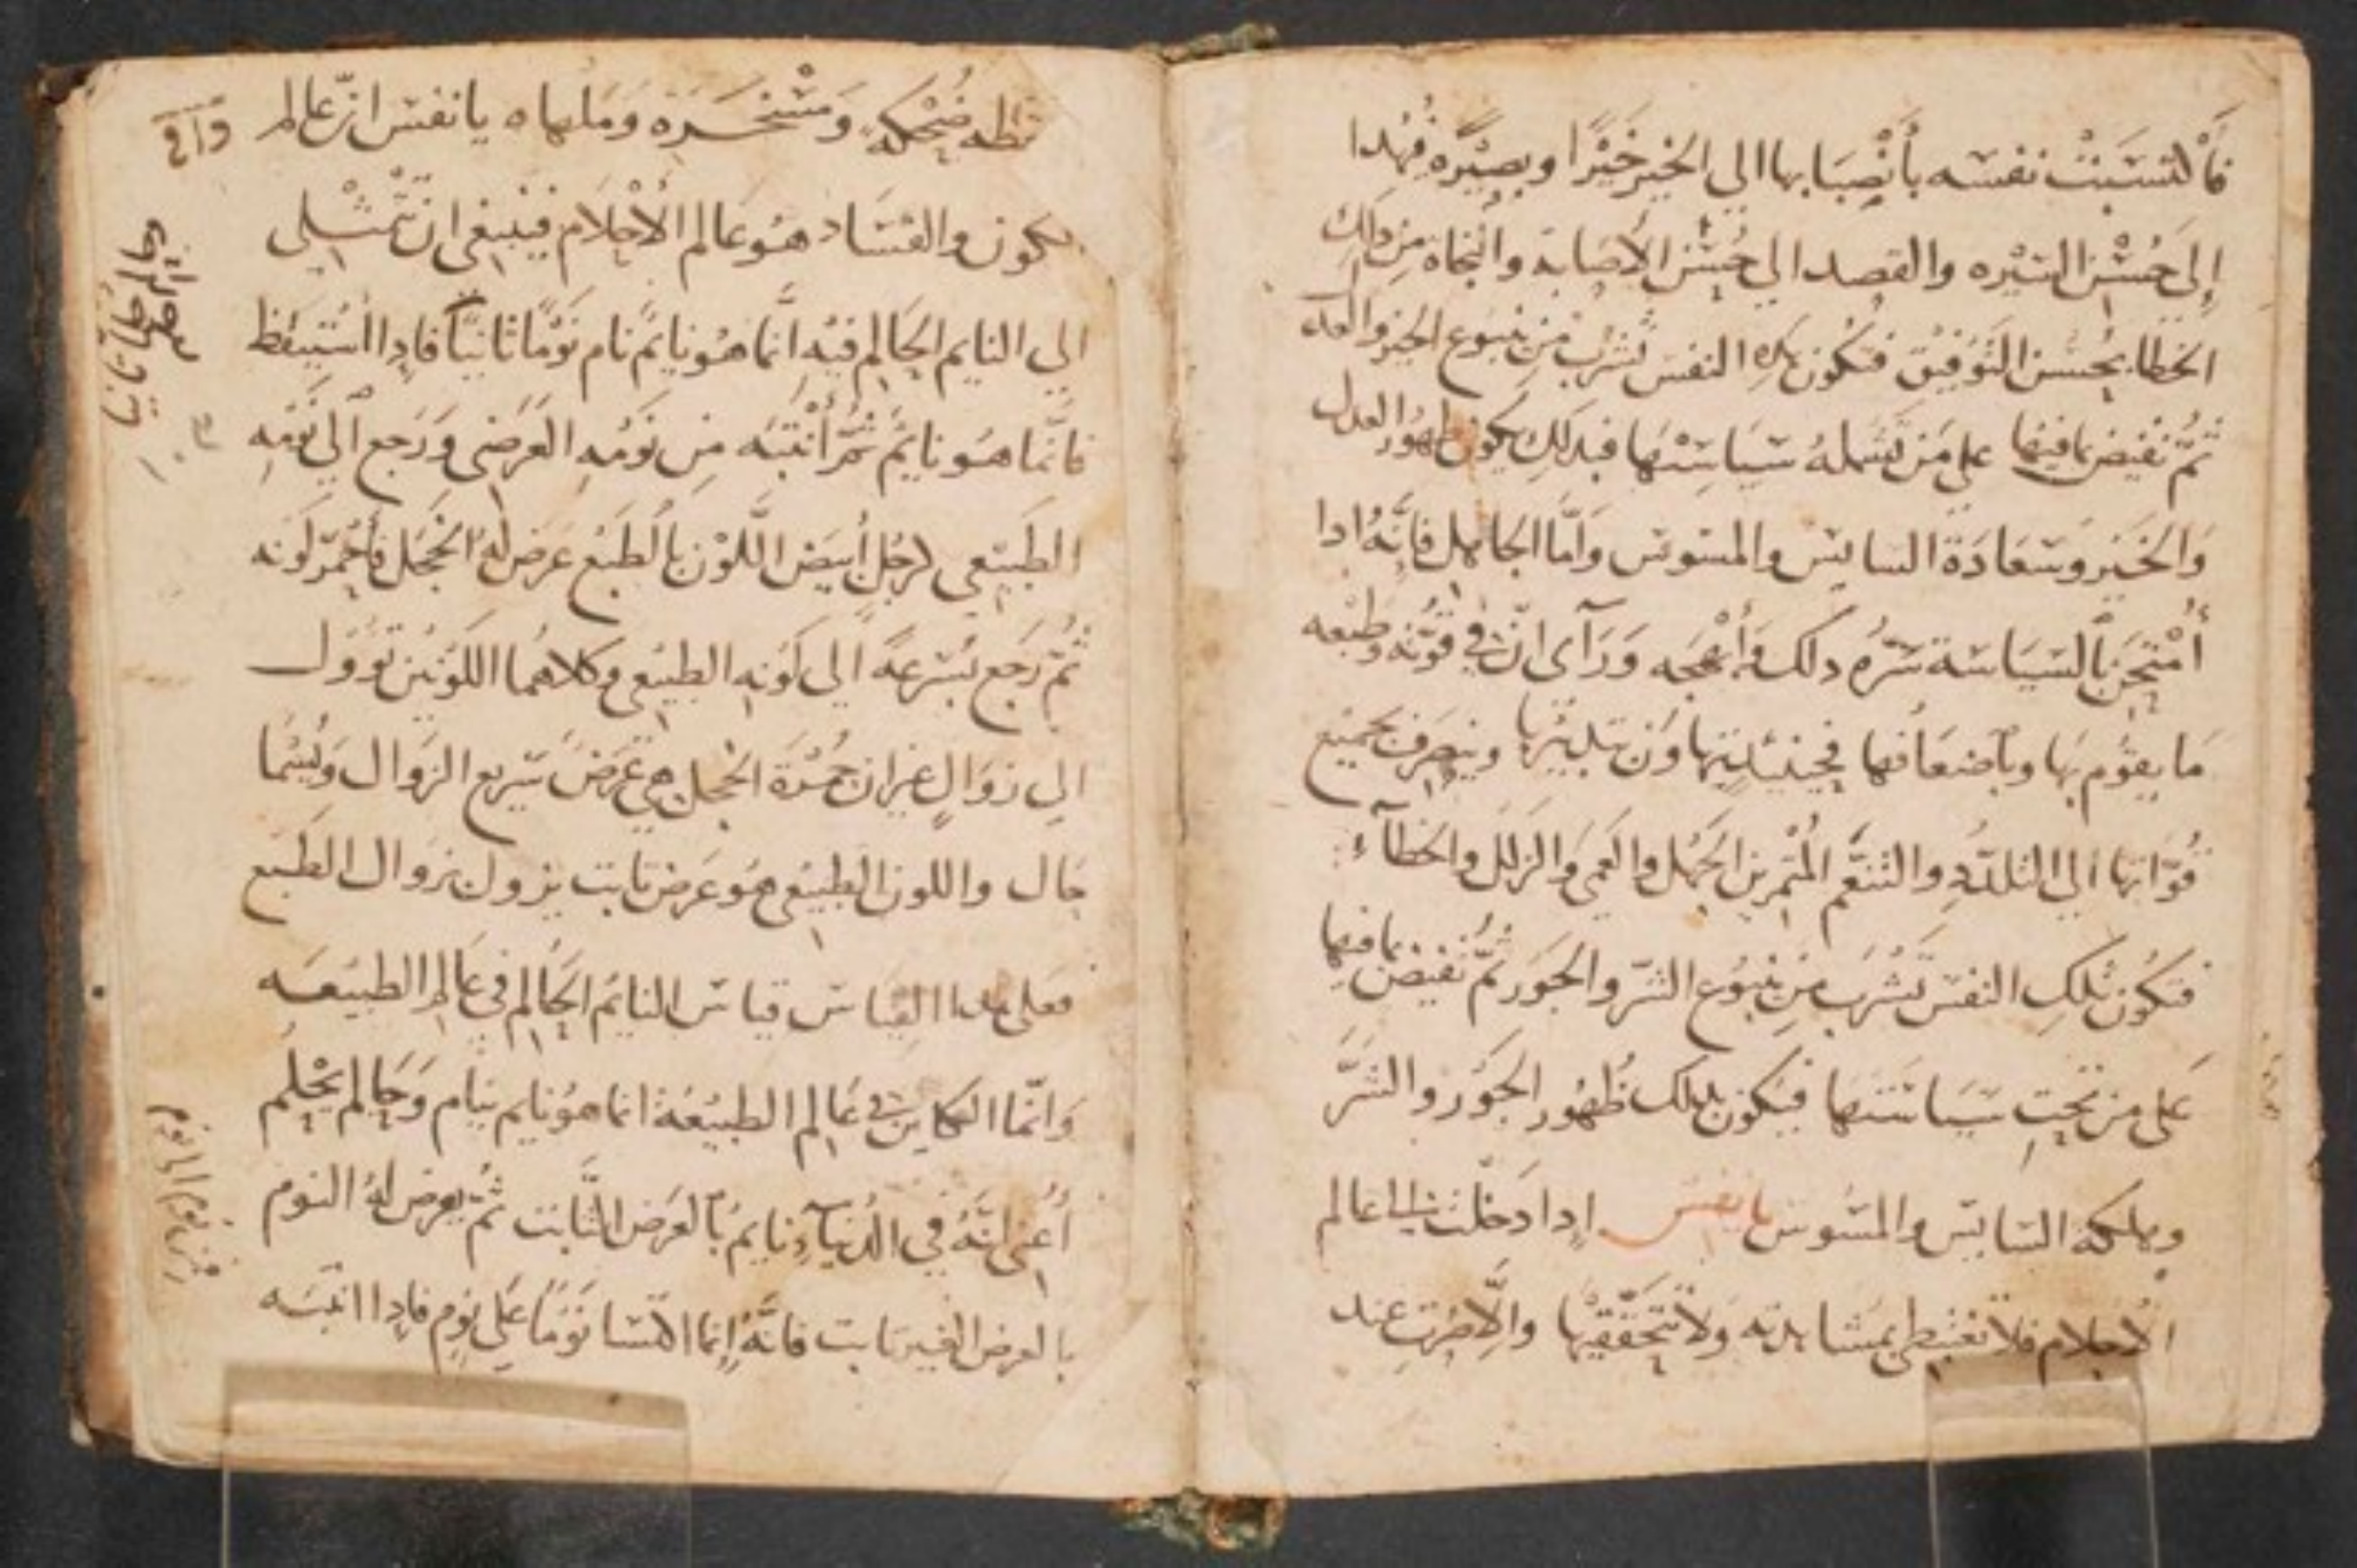 فأكتسبت نفسه بأنصبابها الي الخير خيرًا وبصيره فهدا
إلى حسن السيره والقصد الي حسن الأصابة والنجاه من دلك
الخطا بحسن التوفيق فتكون تلك النفس تشرب من ينبوع الخير والعدل
ثم تفيض بما فيها على من تشمله سياستها فبدلك يكون ظهور العدل
والخير وسعادة السايس والمسوس وأما الجاهل فإنه ادا
أمتحن بالسياسة سره دلك وأبهجه ورآى انّ في قوّته وطبعه
ما يقوم بها وبأضعافها فحينيد يتهاون بتدبيرها وينصرف بجميع
قوّاتها الي التلدد والتنعم المثمرين الجهل والعمى والزلل والخطآء
فتكون تلك النفس تشرب من ينبوع الشر والجور ثم تفيض بما فيها
على من تحت سياستها فيكون بدلك ظهور الجور والشر
وهلكة السايس والمسوس يا نفس إدا دخلت الي عالم
الأحلام فلا تغتبطي بمشاهدته ولا تتحققيها والّا صرت عند
يقظه ضحكة ومسخره وملهاه يا نفس انّ عالم
الكون والفساد هو عالم الأحلام فينبغي ان تتمثلي
الي النايم الحالم فيه أنما هو نايم نام نومًا ثانيًا فادا استيقظ
فانما هو نايم ثم أنتبه من نومه العرضي ورجع الي نومه
الطبيعي كرجل أبيض اللون بالطبع عرض له الخجل فأحمر لونه
ثم رجع بسرعة الي لونه الطبيعي وكلاهما اللونين تؤول
الي زوال غير ان حمرة الخجل هي عرض سريع الزوال
حال واللون الطبيعي هو عرض ثابت يزول بزوال الطبع
فعلى هدا القياس قياس النايم الحالم في عالم الطبيعه
وانّما الكاين في عالم الطبيعة انما هو نايم ينام وحالم يحلم
أعني انّه في الدنيا نايم بالعرض الثابت ثم يعرض له النوم
بالعرض الغير ثابت فانه إنما اكتسا نومًا على نوم فادا انتبه
من نوم الي نوم